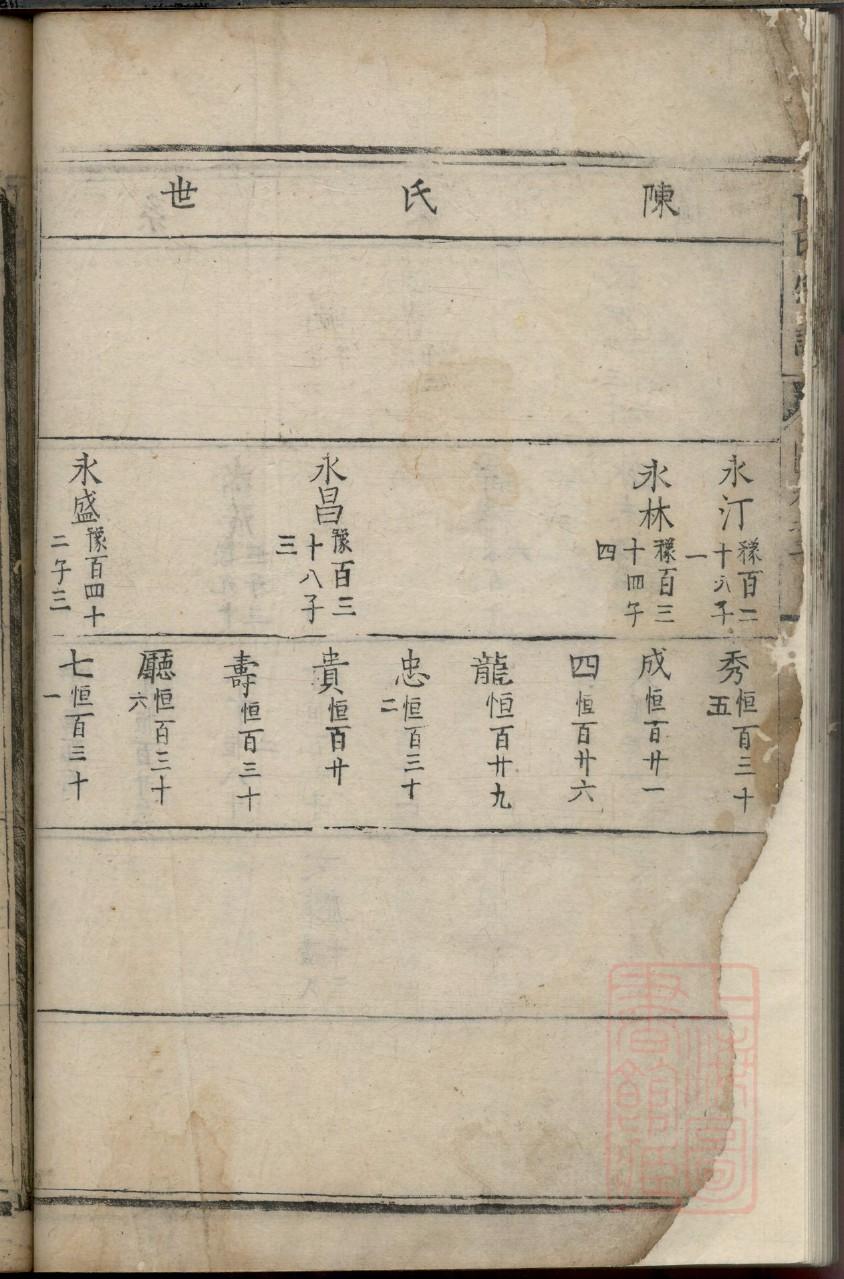 陳氏世
永汀豫百二十六子一
永林豫百三十四子四
永昌豫百三十八子三
永盛豫百四十二子三
秀恒百三十五
成恒百廿一
四恒百廿六
龍恒百廿九
忠恒百三十二
貴恒百廿
壽恒百三十
廳恒百三十六
七恒百三十一
上海圖書館藏